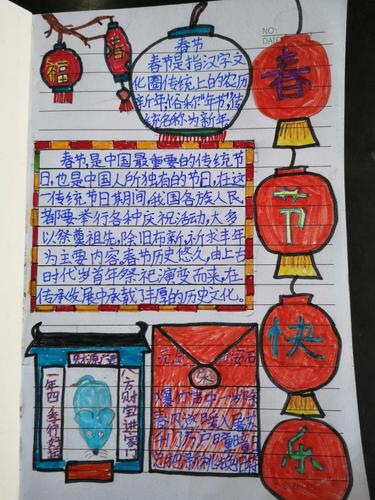 福
春
NO:
DATE
春
节
快
乐
春节
春节是指汉字文
化圈传统上的农历
新年,俗称"年节",传
统名称为新年
春节,是中国最重要的传统节
日,也是中国人所独有的节日,在这
一传统节日期间,我国各族人民
都要举行各种庆祝活动,大多
以祭奠祖先,除旧布新,祈求丰年
为主要内容。春节历史悠久,由上古
时代岁首年祭祀演变而来,在
传承发展中承载了丰厚的历史文化。
八方财宝进家门
一年四季行好运
元旦
王安石
爆竹声中一岁除
春风送暖入屠苏
千门万户曈曈日
总把新桃换旧符